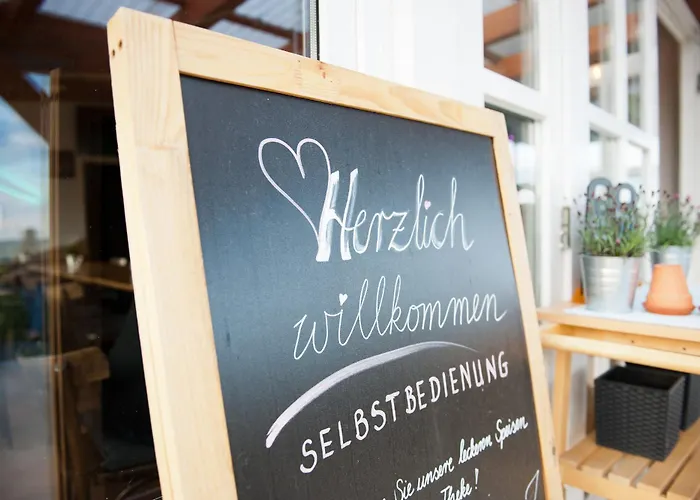 Herzlich
willkommen
SELBSTBEDIENUNG
Sie unsere leckeren Speisen
Theke!